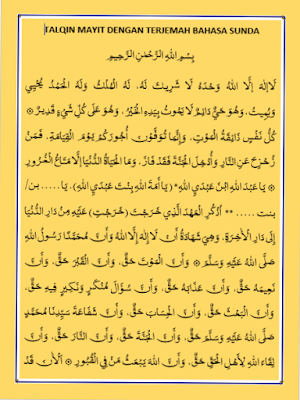 TALQIN MAYIT DENGAN TERJEMAH BAHASA SUNDA
بِسْمِ اللهِ الرَّحْمٰنِ الرَّحِيْمِ
لَا إِلٰهَ إِلَّا اللهُ وَحْدَهُ لَا شَرِيْكَ لَهُ، لَهُ الْمُلْكُ وَلَهُ الْحَمْدُ يُحْيِي
وَيُمِيْتُ، وَهُوَ حَيٌّ دَائِمٌ لَا يَمُوْتُ بِيَدِهِ الْخَيْرُ، وَهُوَ عَلَى كُلِّ شَيْءٍ قَدِيْرٌ ۞
كُلُّ نَفْسٍ ذَائِقَةُ الْمَوْتِ، وَإِنَّمَا تُوَفَّوْنَ أُجُوْرَكُمْ يَوْمَ الْقِيَامَةِ، فَمَنْ
زُحْزِحَ عَنِ النَّارِ وَأُدْخِلَ الْجَنَّةَ فَقَدْ فَازَ، وَمَا الْحَيَاةُ الدُّنْيَا إِلَّا مَتَاعُ الْغُرُوْرِ
۞ يَا عَبْدَ اللهِ ابْنَ عَبْدَيِ اللهِ* (يَا أَمَةَ اللهِ بِنْتَ عَبْدَيِ اللهِ)، يَا..... بن/
بنت ..... ** اُذْكُرِ الْعَهْدَ الَّذِي خَرَجْتَ (خَرَجْتِ) عَلَيْهِ مِنْ دَارِ الدُّنْيَا
إِلَى دَارِ الْآخِرَةِ، وَهِيَ شَهَادَةُ أَنْ لَا إِلٰهَ إِلَّا اللهُ وَأَنَّ مُحَمَّدًا رَسُوْلُ اللهِ
صَلَّى اللهُ عَلَيْهِ وَسَلَّمَ ۞ وَأَنَّ الْمَوْتَ حَقٌّ، وَأَنَّ الْقَبْرَ حَقٌّ، وَأَنَّ
نَعِيْمَهُ حَقٌّ، وَأَنَّ عَذَابَهُ حَقٌّ، وَأَنَّ سُؤَالَ مُنْكَرٍ وَنَكِيْرٍ فِيْهِ حَقٌّ،
وَأَنَّ الْبَعْثَ حَقٌّ، وَأَنَّ الْحِسَابَ حَقٌّ، وَأَنَّ شَفَاعَةَ سَيِّدِنَا مُحَمَّدٍ
صَلَّى اللهُ عَلَيْهِ وَسَلَّمَ حَقٌّ، وَأَنَّ الْجَنَّةَ حَقٌّ، وَأَنَّ النَّارَ حَقٌّ، وَأَنَّ
لِقَاءَ اللهِ لِأَهْلِ الْحَقِّ حَقٌّ، وَأَنَّ اللهَ يَبْعَثُ مَنْ فِي الْقُبُوْرِ ۞ اَلْآنَ قَدْ